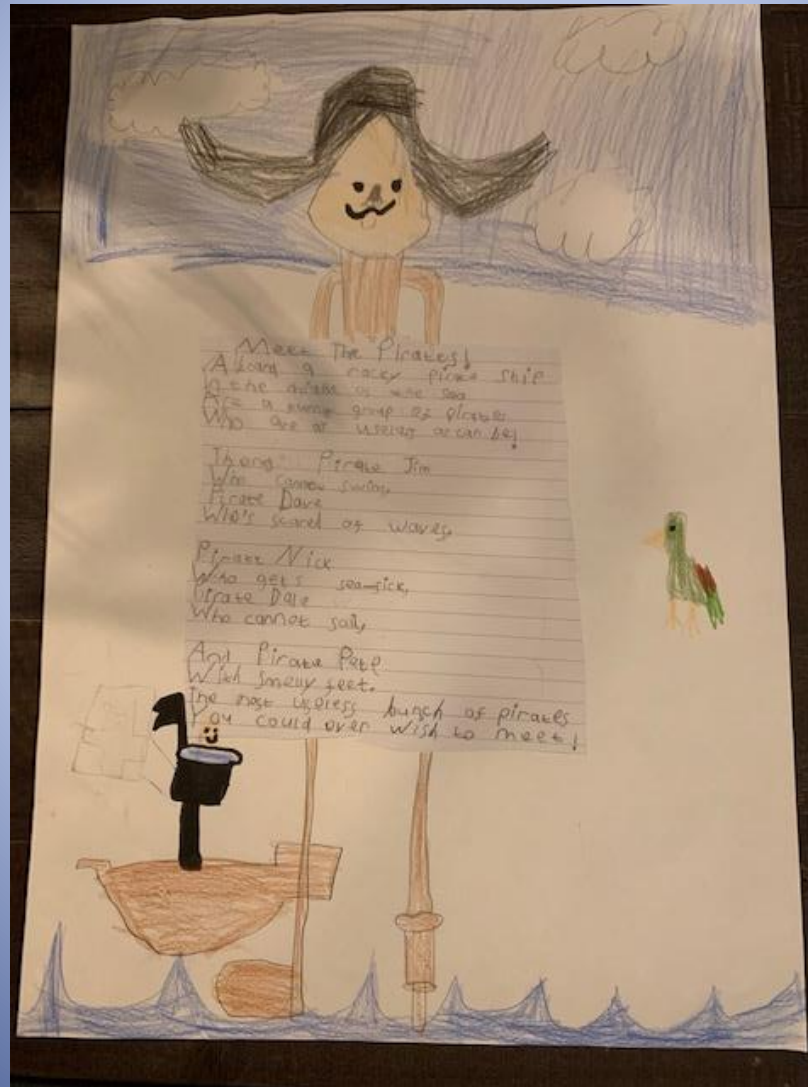 Meet The Pirates!
Aboard a rocky pirate ship
In the middle of the sea
Are a group of pirates
Who are as useless as can be!
Pirate Jim
Who cannot swim,
Pirate Dave
Who's scared of waves,
Pirate Nick
Who gets sea-sick,
Pirate Dale
Who cannot sail,
And Pirate Pete
With smelly feet.
The most useless bunch of pirates
You could ever wish to meet!